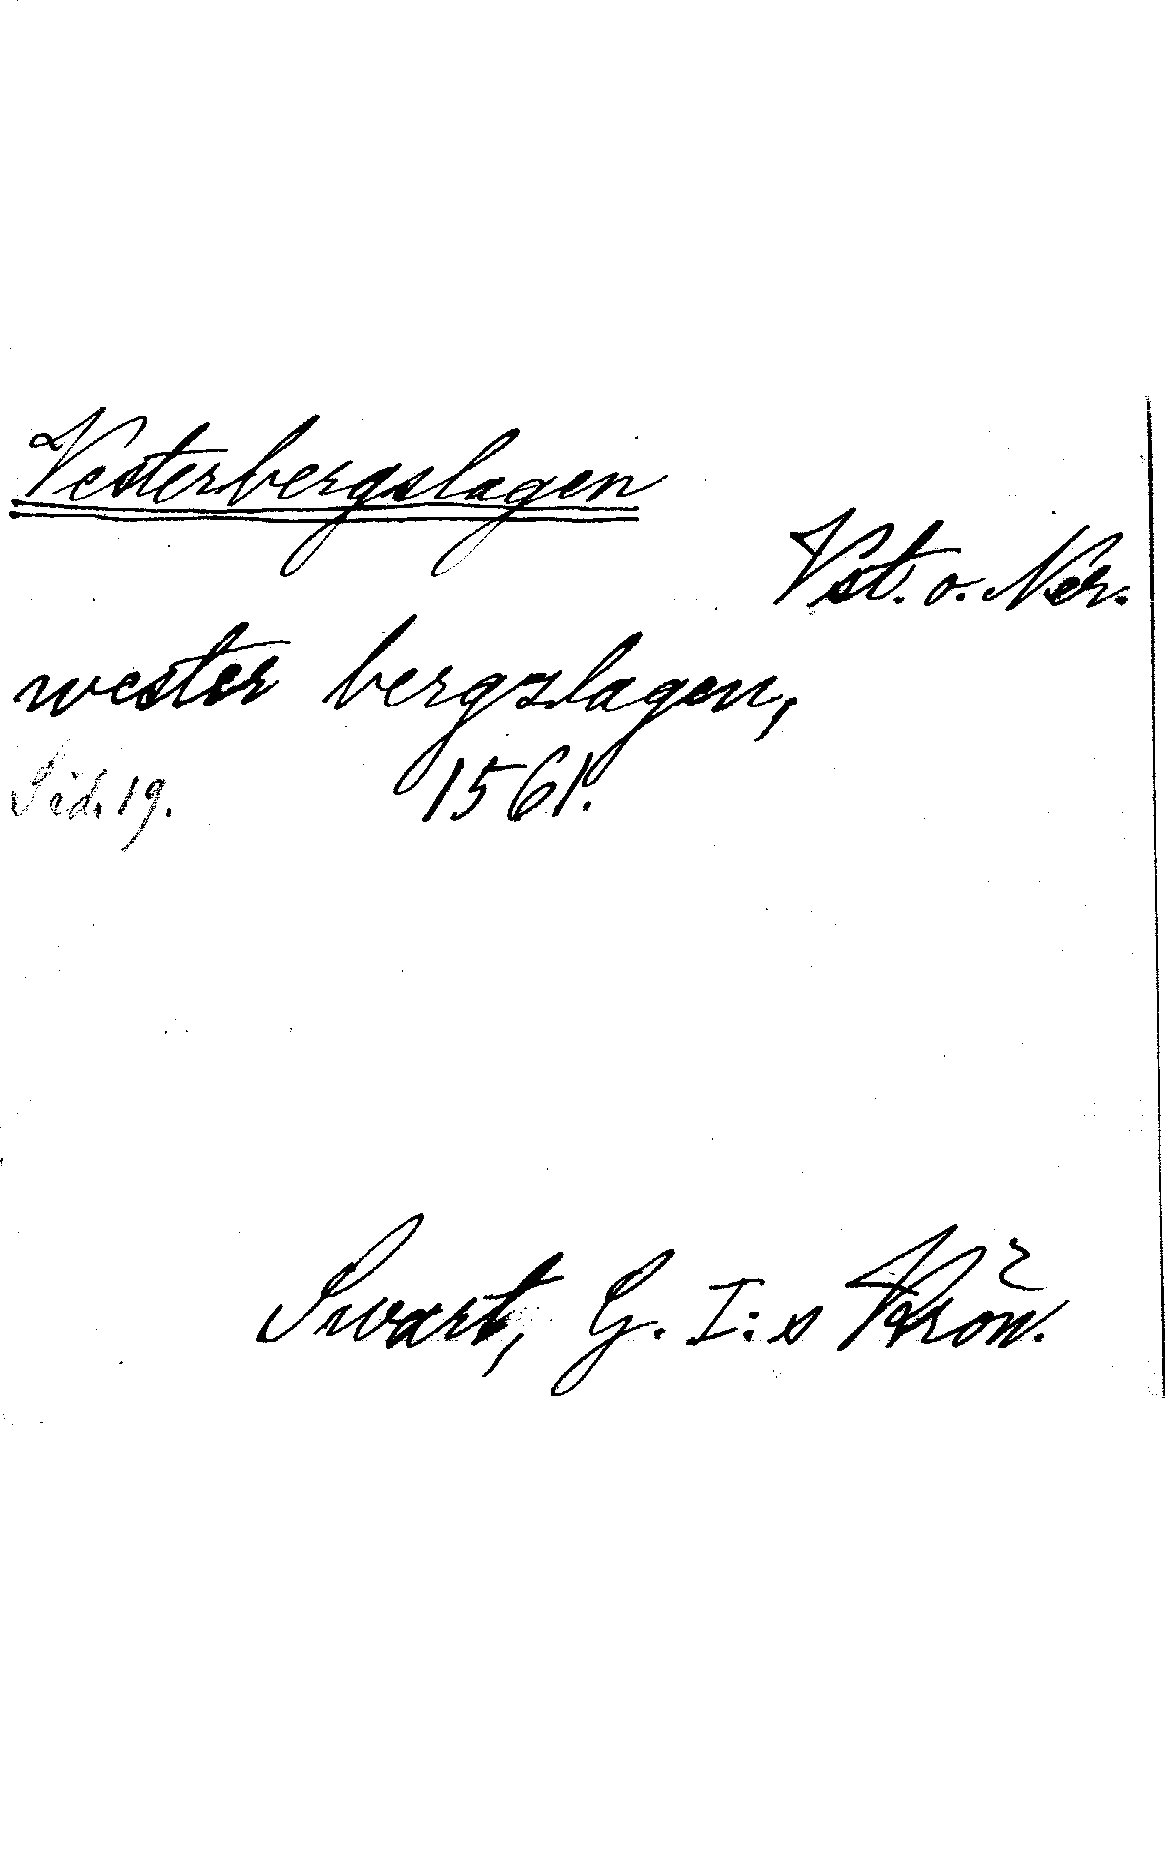 Vesterbergslagen
Vst. o. Ner.
wester bergslagen,
Sid. 19. 1561.
Swart, G. I:s Krön.